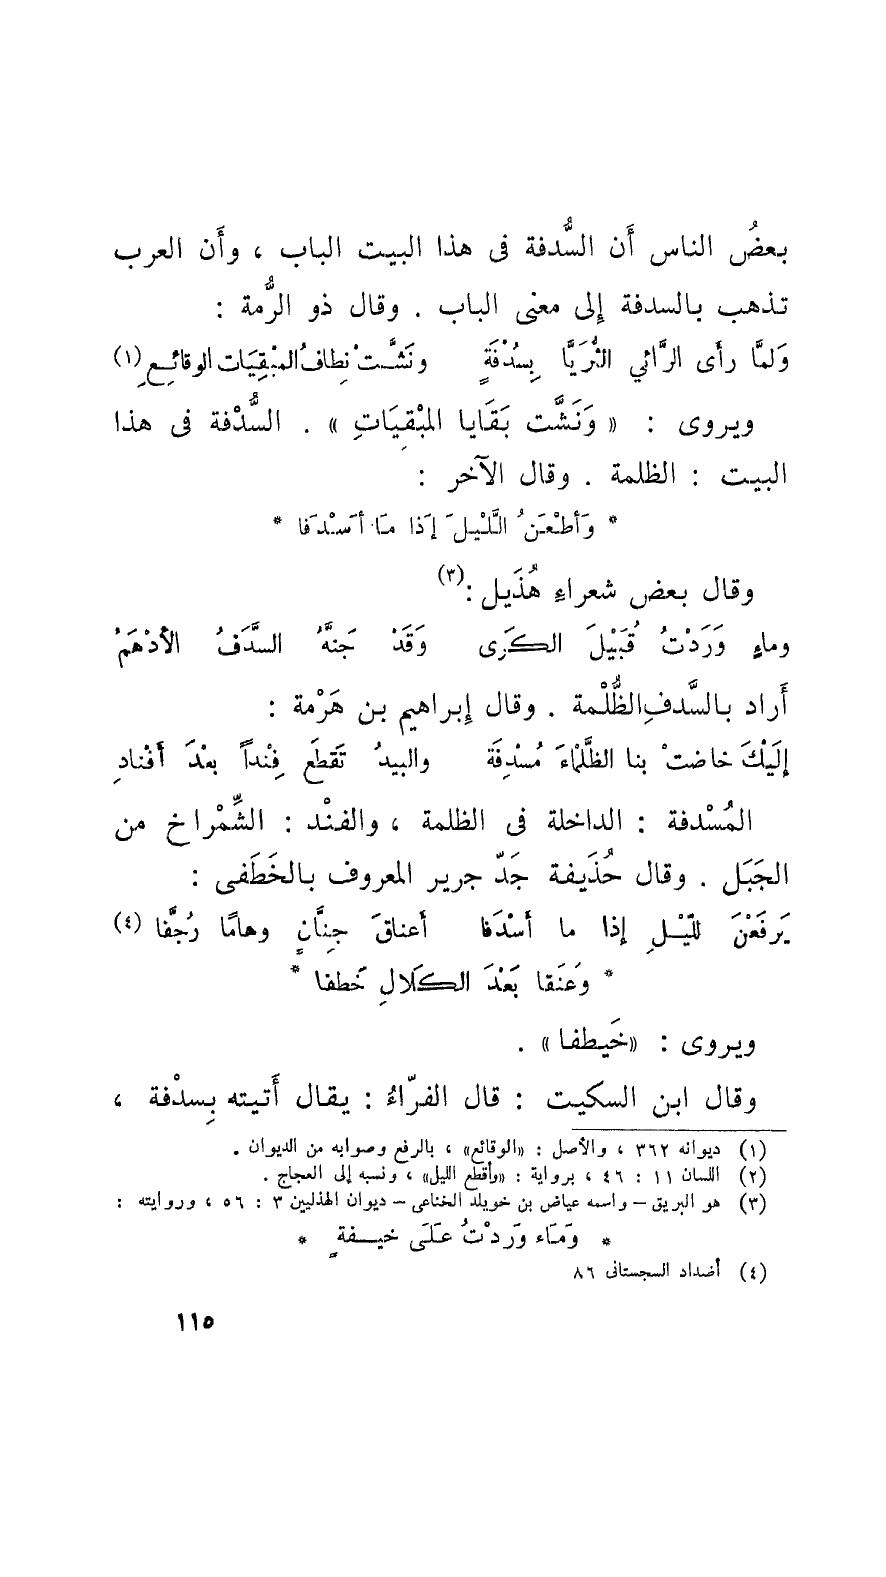 بعضُ الناس أَن السُّدفة فى هذا البيت الباب ، وأَن العرب
تذهب بالسدفة إلى معنى الباب . وقال ذو الرُّمة :
وَلمَّا رأَى الرَّائي الثُّرَيَّا بِسُدْفَةٍ ونَشَّتْ نِطافُ المبْقِيَات الوقائِعِ (١)
ويروى : « وَنَشَّت بَقَايا المبْقِيَاتِ » . السُّدْفة فى هذا
البيت : الظلمة . وقال الآخر :
* وَأطْعَنُ اللَّيلَ إذا مَا أسْدَفا *
وقال بعض شعراءِ هُذَيل :(٣)
وماءٍ وَرَدْتُ قُبَيْلَ الكَرَى وَقَدْ جَنَّهُ السَّدَفُ الأدْهَمُ
أَراد بالسَّدفِ الظُّلْمة . وقال إِبراهيم بن هَرْمة :
إلَيْكَ خاضتْ بنا الظَّلْمَاءَ مُسْدِفَة والبيدُ تَقطَع فِنْداً بعْدَ أفْنادِ
المُسْدفة : الداخلة فى الظلمة ، والفنْد : الشِّمْراخ من
الجَبَل . وقال حُذَيفة جَدّ جرير المعروف بالخَطَفى :
يَرفَعْنَ للَّيْلِ إذا ما أسْدَفا أعناقَ جِنَّانٍ وهامًا رُجَّفا (٤)
* وعَنَقا بَعْدَ الكَلالِ خَطفا *
ويروى : «خَيطفا» .
وقال ابن السكيت : قال الفرّاءُ : يقال أَتيته بِسدْفة ،
(١) ديوانه ٣٦٢ ، والأصل : «الوقائع» ، بالرفع وصوابه من الديوان .
(٢) اللسان ١١ : ٤٦ ، برواية : «وأقطع الليل» ، ونسبه إلى العجاج .
(٣) هو البريق – واسمه عياض بن خويلد الخناعى – ديوان الهذليين ٣ : ٥٦ ، وروايته :
* وَمَاء وَردْتُ عَلَى خيفةٍ *
(٤) أضداد السجستانى ٨٦
١١٥